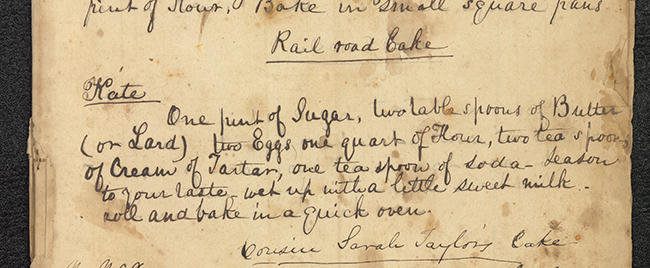 pint of flour, Bake in small square pans
Rail road Cake
Kate
One pint of Sugar, two table spoons of Butter
(or Lard) two Eggs one quart of Flour, two tea spoons
of Cream of Tartar, one tea spoon of soda - Season
to your taste, wet up with a little sweet milk -
roll and bake in a quick oven.
Cousin Sarah Taylor's Cake